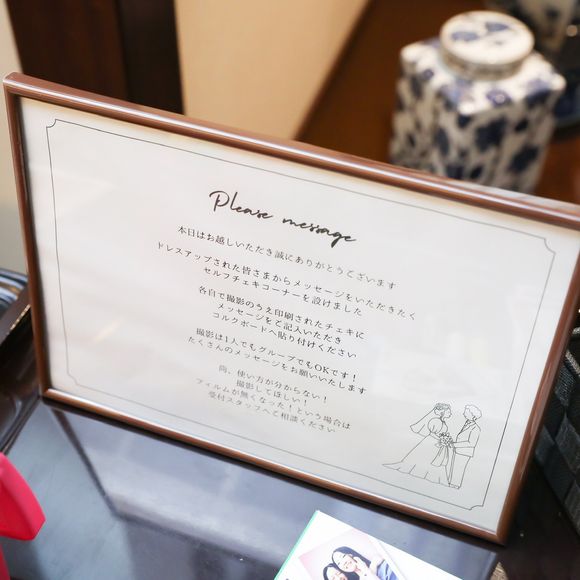 Please message
本日はお越しいただき誠にありがとうございます
ドレスアップされた皆さまからメッセージをいただきたく
セルフチェキコーナーを設けました
各自で撮影のうえ印刷されたチェキに
メッセージをご記入いただき
コルクボードへ貼り付けください
撮影は1人でもグループでもOKです！
たくさんのメッセージをお願いいたします
尚、使い方が分からない！
撮影してほしい！
フィルムが無くなった！という場合は
受付スタッフへご相談ください